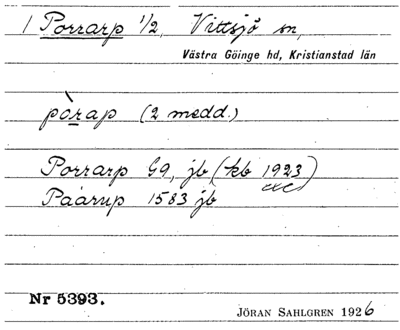 1 Porrarp 1/2, Vittsjö sn,
Västra Göinge hd, Kristianstad län
pòrap (2 medd.)
Porrarp G9, jb (kb 1923)
Paarup 1583 jb
Nr 5393.
JÖRAN SAHLGREN 1926